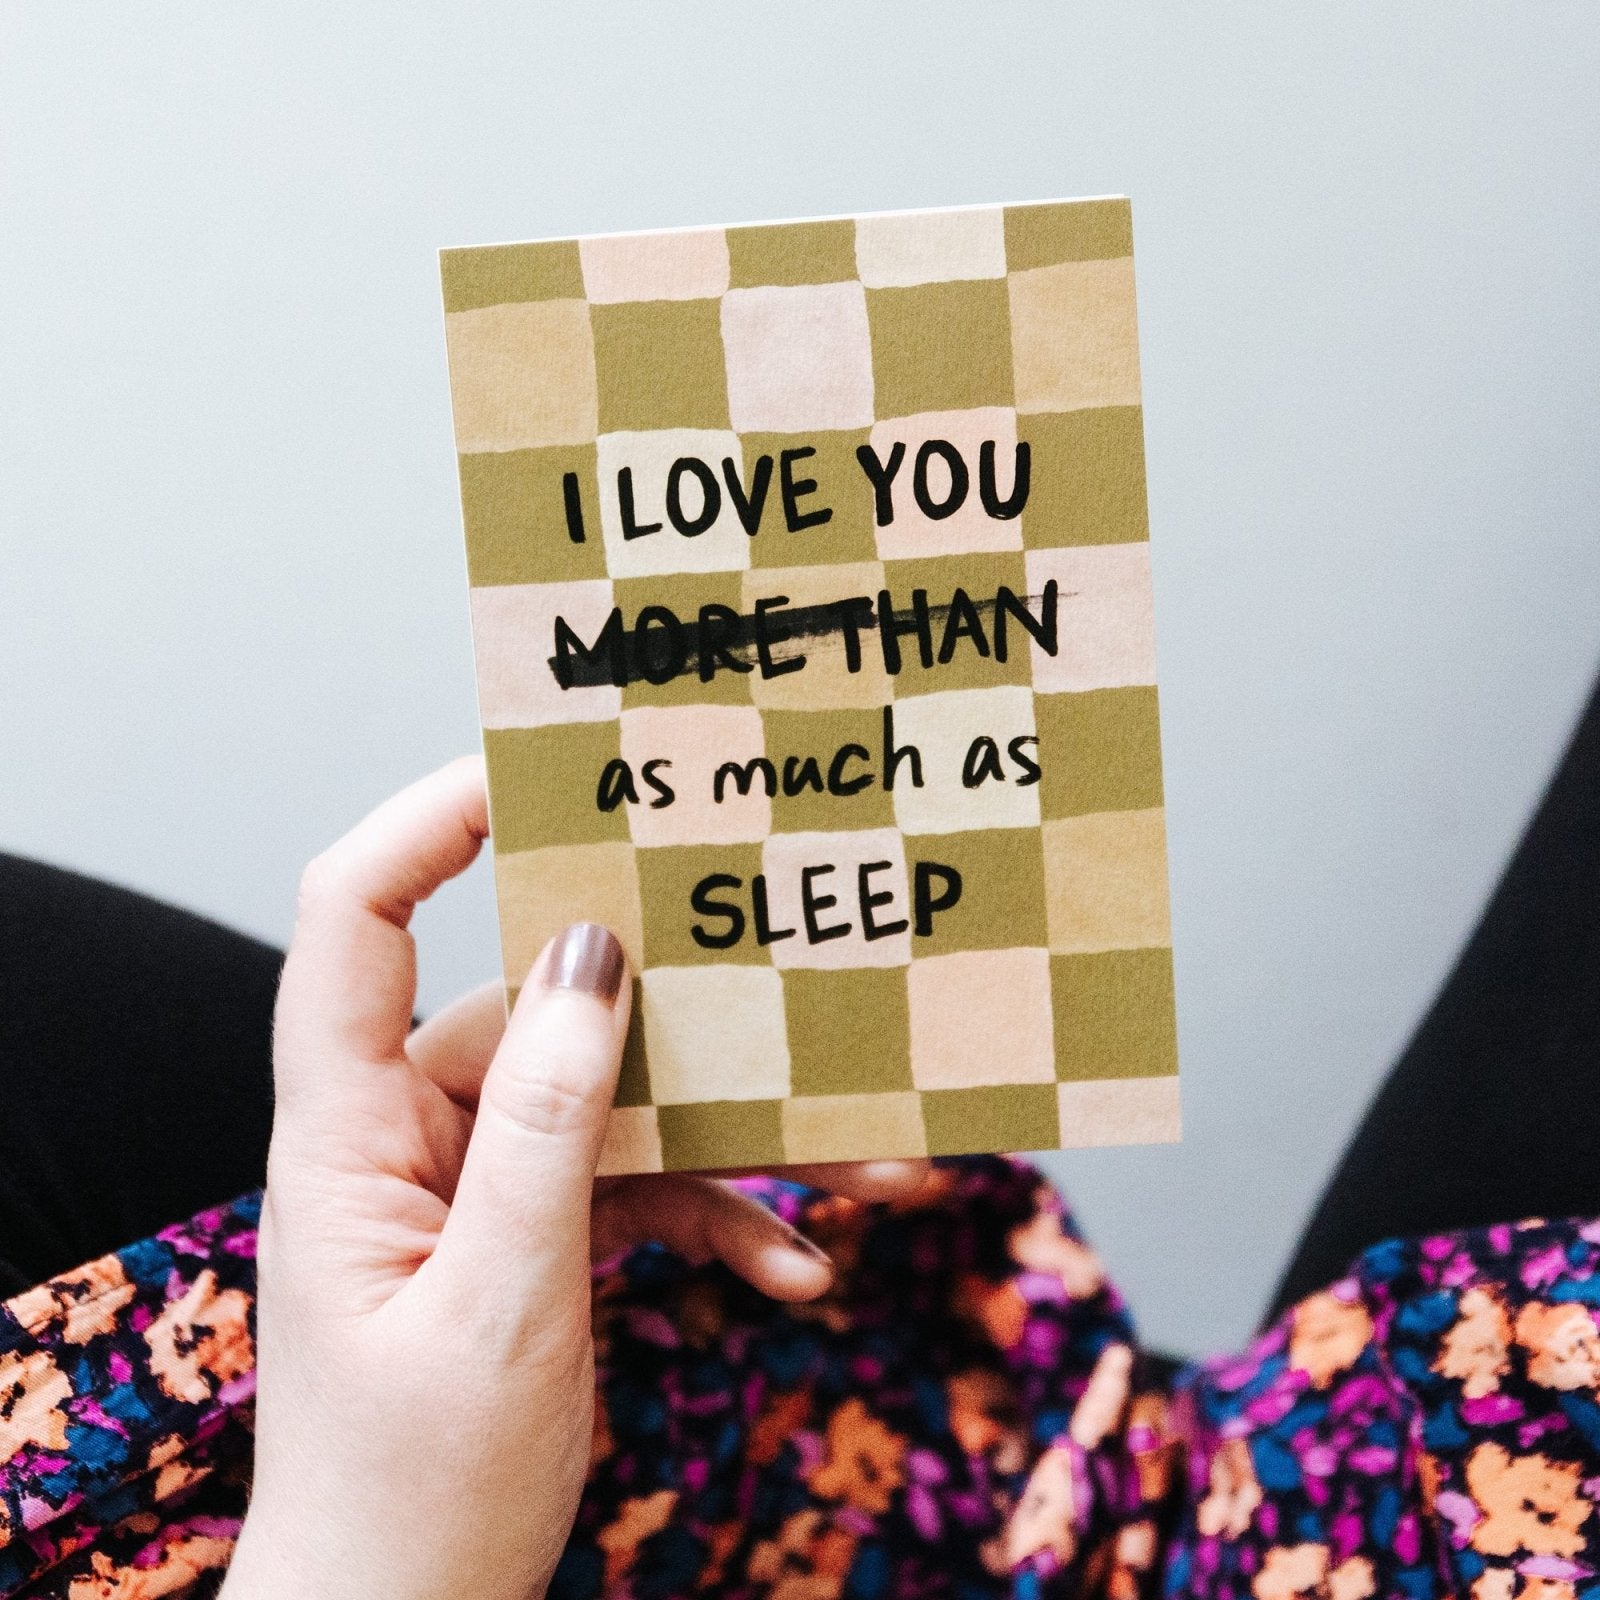 I LOVE YOU
MORE THAN
as much as
SLEEP